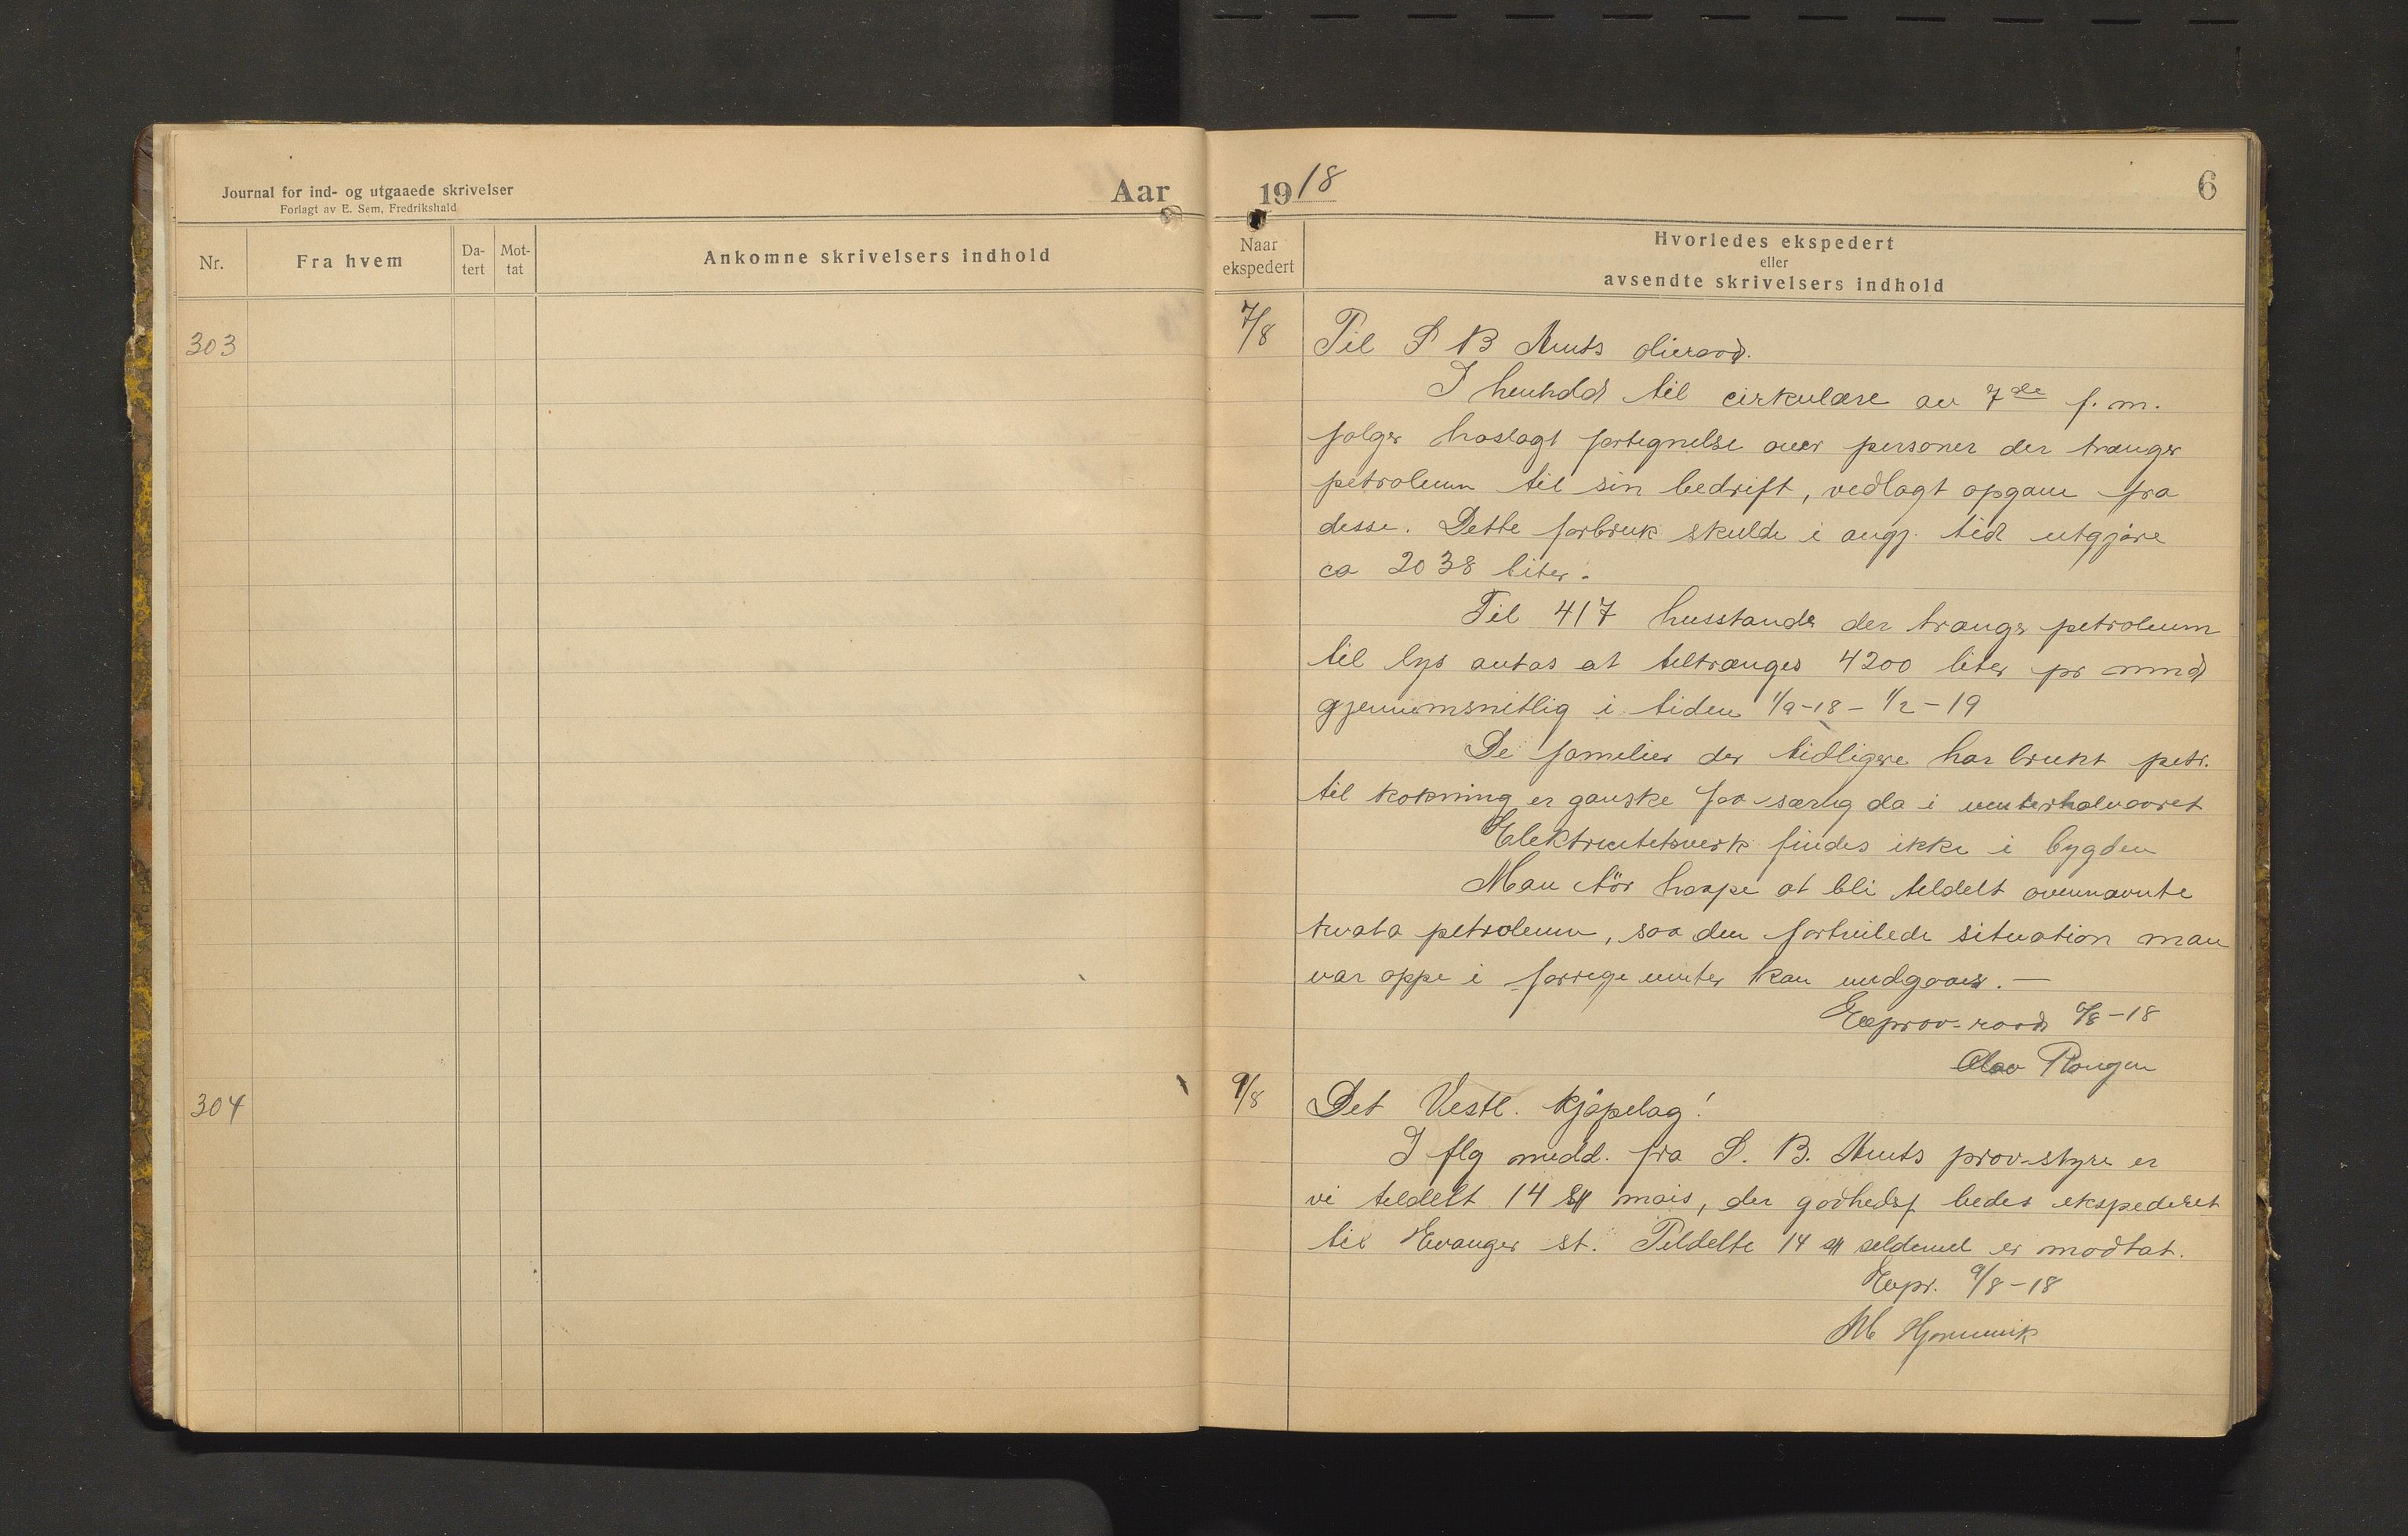 Journal for ind- og utgaaede skrivelser
Forlagt av E. Sem, Fredrikshald
Aar
Nr.
Fra hvem
Da-
tert
Mot-
tat
Ankomne skrivelsers indhold
303
304
1918
6
Naar
ekspedert
Hvorledes ekspedert
eller
avsendte skrivelsers indhold
7/8
Til S B Amts olieraad.
I henhold til cirkulære av 7de f. m.
følger hoslagt fortegnelse over personer der trænger
petroleum til sin bedrift, vedlagt opgave fra
desse. Dette forbruk skulde i angj. tid utgjøre
ca 2038 liter.
Til 417 husstande der trænger petroleum
til lys antas at tiltrænges 4200 liter pr mnd
gjennemsnitlig i tiden 1/9-18 - 1/2-19
De familier der tidligere har brukt petr.
til kokning er ganske faa særlig da i vinterhalvaaret
Elektricitetsverk findes ikke i bygden
Man tör haape at bli tildelt ovennævnte
kvata petroleum, saa den fortvilede situation man
var oppe i forrige vinter kan undgaaes. —
Eeprov-raad 6/8-18
Olav Rongen
9/8
Det Vestl. kjøpelag!
I flg medd. fra S. B. Amts prov-styre er
vi tildelt 14 sk mais, der godhedsf bedes ekspederet
til Evanger st. Tildelte 14 sk sildemel er modtat.
Eepr. 9/8-18
M Hjørnevik